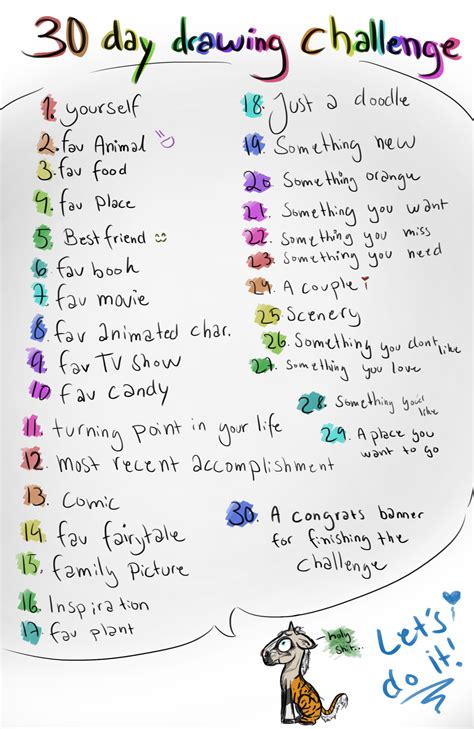 30 day drawing challenge
1. yourself
2. fav Animal
3. fav food
4. fav Place
5. Best friend
6. fav book
7. fav movie
8. fav animated char.
9. fav TV show
10 fav candy
11. turning point in your life
12. most recent accomplishment
13. Comic
14. fav fairytale
15. Family Picture
16. Inspiration
17. fav plant
18. Just a doodle
19. Something new
20. Something orange
21. Something you want
22. Something you miss
23. Something you need
24. A couple
25 Scenery
26. Something you dont like
27. Something you love
28. Something you'd
like
29. A place you
want to go
30. A congrats banner
for finishing the
challenge
holy
shit...
Let's
do it!